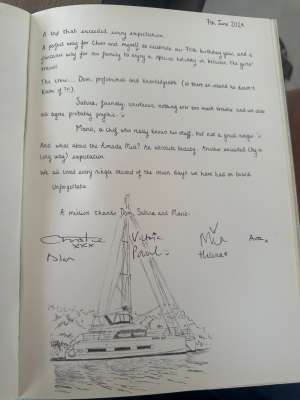 7th June 2024
A trip that exceeded every expectation.
A perfect way for Chris and myself to celebrate our 70th birthday year and a
fantastic way for our family to enjoy a special holiday in between the girls'
travels.
The crew... Dom, professional and knowledgeable (is there an island he doesn't
know of ?!).
Salina, friendly, courteous, nothing ever too much trouble and we also
all agree, probably psychic :-
Mario, a chef who really knows his stuff, but not a great singer :-
And what about the Amada Mia? An absolute beauty. Another exceeded (by a
long way) expectation.
We all loved every single second of the seven days we have had on board.
Unforgettable.
A million thanks Dom, Salina and Mario.
Christine Victoria
xxx
Alan Helena